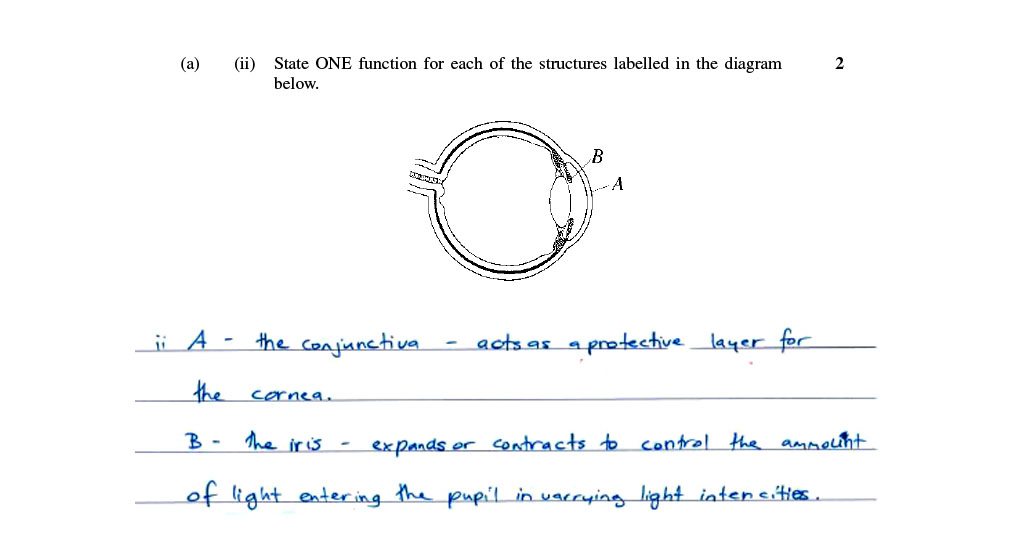 (a) (ii) State ONE function for each of the structures labelled in the diagram 2
below.
B
A
ii A - the conjunctiva - acts as a protective layer for
the cornea.
B - The iris - expands or contracts to control the ammount
of light entering the pupil in varrying light intencities.